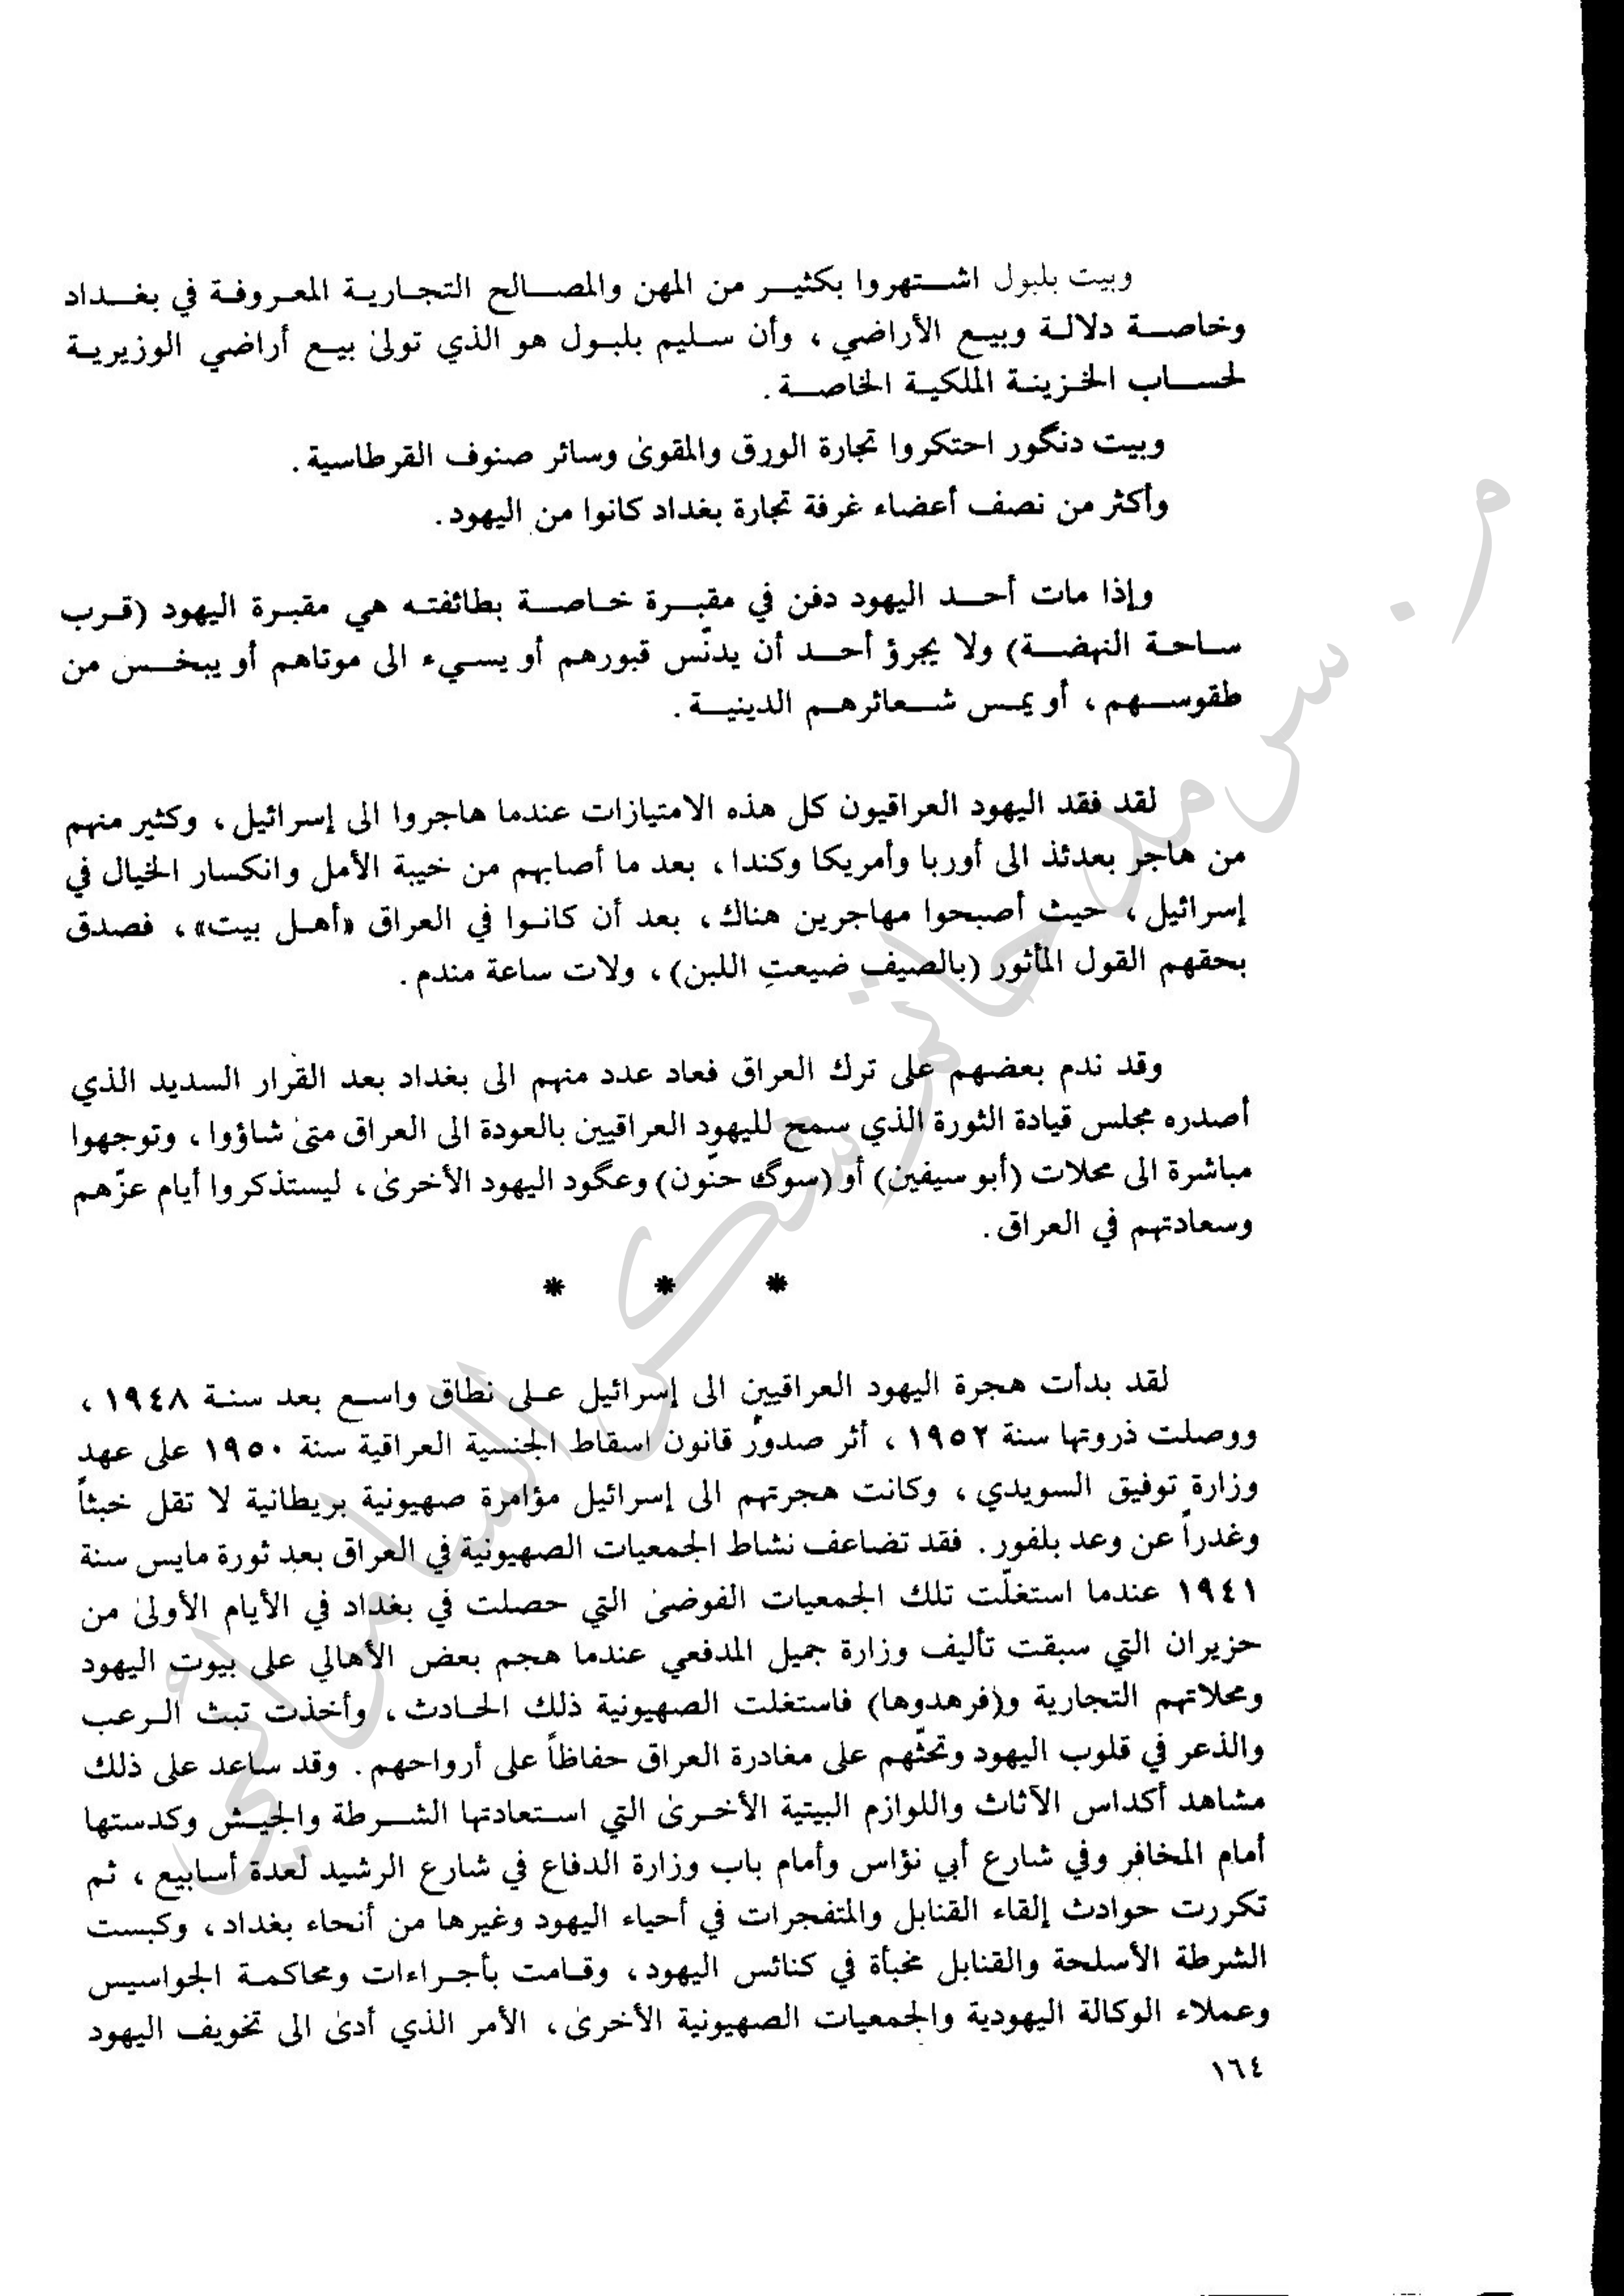 وبيت بلبول اشـتهروا بكثيـر من المهن والمصـالح التجـاريـة المعـروفـة في بغـداد
وخاصـة دلالـة وبيـع الأراضي ، وأن سـليم بلبـول هو الذي تولىٰ بيـع أراضي الوزيريـة
لحسـاب الخـزينـة الملكيـة الخاصـة .
وبيت دنگور احتكروا تجارة الورق والمقوىٰ وسائر صنوف القرطاسية .
وأكثر من نصف أعضاء غرفة تجارة بغداد كانوا من اليهود .
وإذا مات أحـد اليهود دفن في مقبـرة خـاصـة بطائفتـه هي مقبـرة اليهود (قـرب
سـاحـة النهضـة) ولا يجرؤ أحـد أن يدنّس قبورهم أو يسـيء الى موتاهم أو يبخـس من
طقوسـهم ، أو يمـس شـعائرهـم الدينيـة .
لقد فقد اليهود العراقيون كل هذه الامتيازات عندما هاجروا الى إسرائيل ، وكثير منهم
من هاجر بعدئذ الى أوربا وأمريكا وكندا ، بعد ما أصابهم من خيبة الأمل وانكسار الخيال في
إسرائيل ، حيث أصبحوا مهاجرين هناك ، بعد أن كانـوا في العراق «أهـل بيت» ، فصدق
بحقهم القول المأثور (بالصيف ضيعتِ اللبن) ، ولات ساعة مندم .
وقد ندم بعضهم على ترك العراق فعاد عدد منهم الى بغداد بعد القرار السديد الذي
أصدره مجلس قيادة الثورة الذي سمح لليهود العراقيين بالعودة الى العراق متىٰ شاؤوا ، وتوجهوا
مباشرة الى محلات (أبو سيفين) أو (سوگ حنّون) وعگود اليهود الأخرىٰ ، ليستذكروا أيام عزّهم
وسعادتهم في العراق .
* * *
لقد بدأت هجرة اليهود العراقيين الى إسرائيل عـلى نطاق واسـع بعد سنـة ١٩٤٨ ،
ووصلت ذروتها سنة ١٩٥٢ ، أثر صدور قانون اسقاط الجنسية العراقية سنة ١٩٥٠ على عهد
وزارة توفيق السويدي ، وكانت هجرتهم الى إسرائيل مؤامرة صهيونية بريطانية لا تقل خبثاً
وغدراً عن وعد بلفور . فقد تضاعف نشاط الجمعيات الصهيونية في العراق بعد ثورة مايس سنة
١٩٤١ عندما استغلّت تلك الجمعيات الفوضىٰ التي حصلت في بغداد في الأيام الأولىٰ من
حزيران التي سبقت تأليف وزارة جميل المدفعي عندما هجم بعض الأهالي على بيوت اليهود
ومحلاتهم التجارية و(فرهدوها) فاستغلت الصهيونية ذلك الحـادث ، وأخذت تبث الـرعب
والذعر في قلوب اليهود وتحثّهم على مغادرة العراق حفاظاً على أرواحهم . وقد ساعد على ذلك
مشاهد أكداس الآثاث واللوازم البيتية الأخـرىٰ التي اسـتعادتها الشـرطة والجيـش وكدستها
أمام المخافر وفي شارع أبي نؤاس وأمام باب وزارة الدفاع في شارع الرشيد لعدة أسابيع ، ثم
تكررت حوادث إلقاء القنابل والمتفجرات في أحياء اليهود وغيرها من أنحاء بغداد ، وكبست
الشرطة الأسلحة والقنابل مخبأة في كنائس اليهود ، وقـامت بأجـراءات ومحاكمـة الجواسيس
وعملاء الوكالة اليهودية والجمعيات الصهيونية الأخرىٰ ، الأمر الذي أدىٰ الى تخويف اليهود
١٦٤
م. سرمد حاتم شكر السامرائي